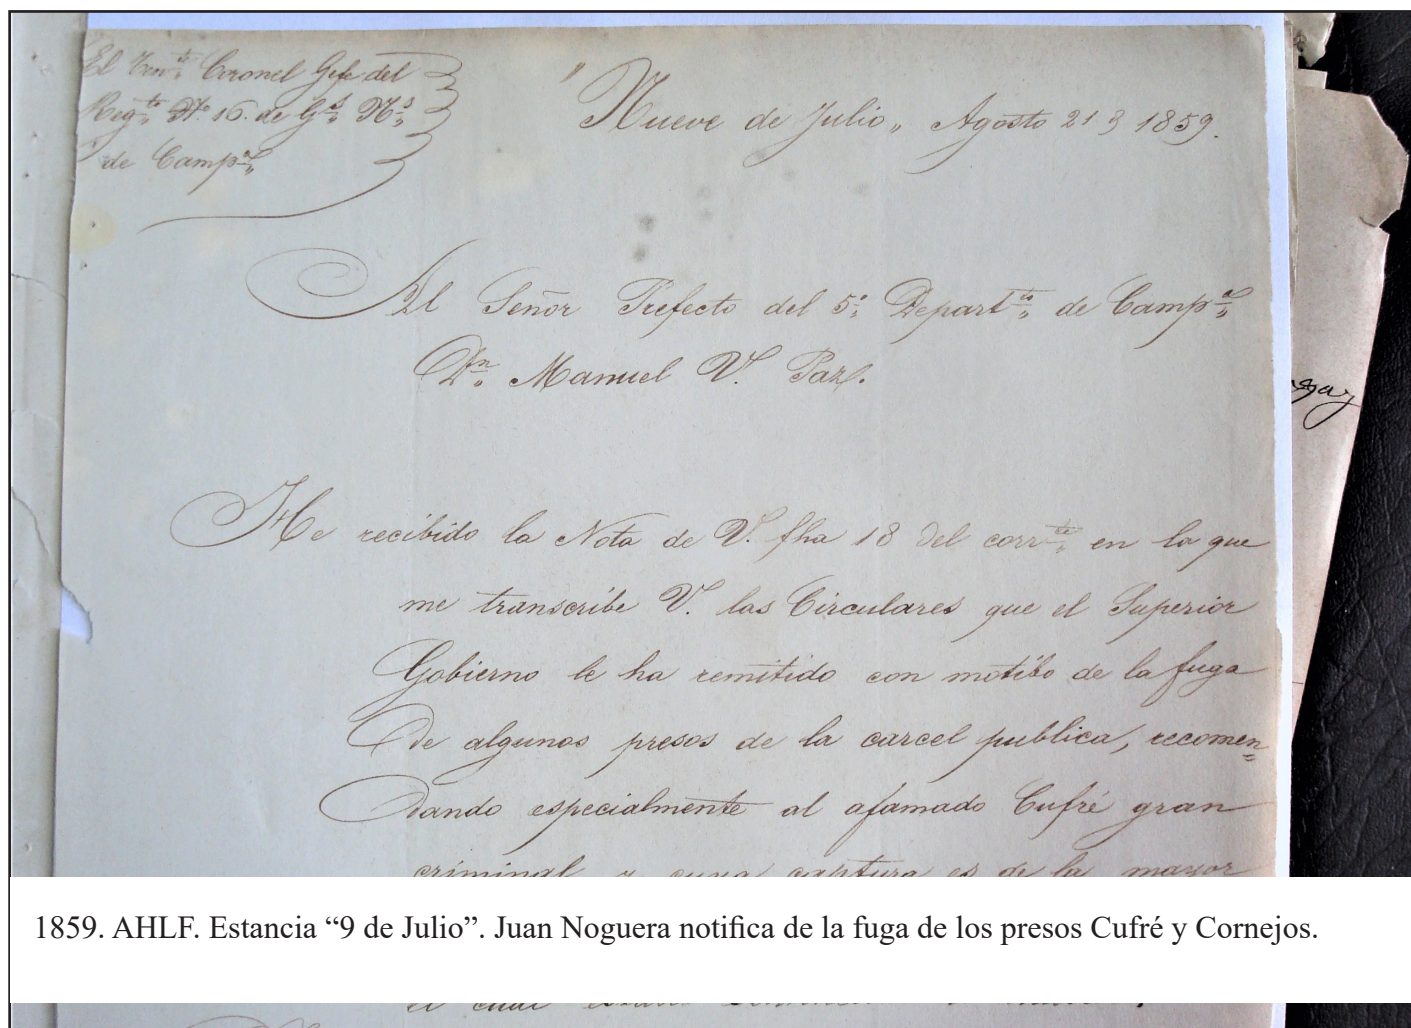 El Ten.te Coronel Gefe del
Reg.to N.o 16. de G.s N.s
de Camp.a
"Nueve de Julio„ Agosto 21 3 1859.
Al Señor Prefecto del 5.o Depart.to de Camp.a
Dn. Manuel V. Paz.
He recibido la Nota de V. fha 18 del corr.te en la que
me transcribe V. las Circulares que el Superior
Gobierno le ha remitido con motibo de la fuga
de algunos presos de la carcel publica, recomen=
dando especialmente al afamado Cufré gran
criminal y cuya captura es de la mayor
1859. AHLF. Estancia “9 de Julio”. Juan Noguera notifica de la fuga de los presos Cufré y Cornejos.
el cual